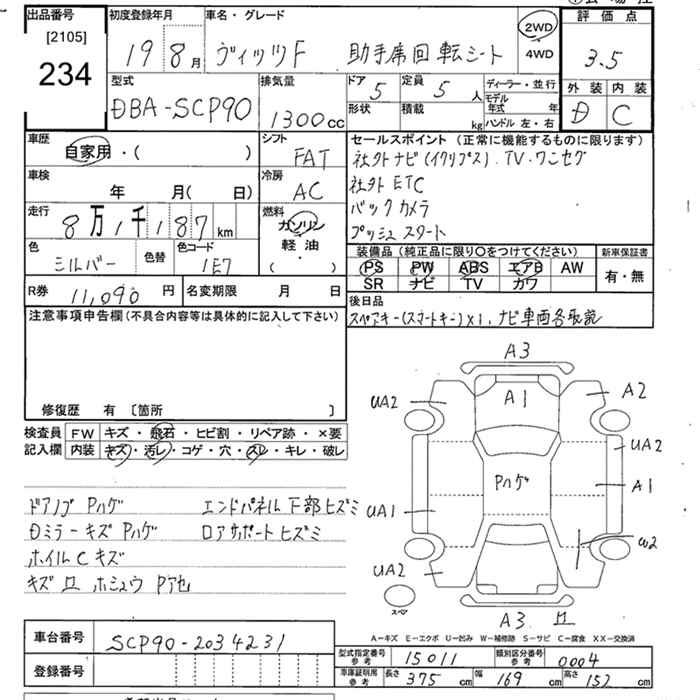 出品番号 初度登録年月 車名・グレード 評価点
[2105]
234
19 8月 ヴィッツF 助手席回転シート 2WD 4WD 3.5
型式 排気量 ドア 定員 ディーラー・並行 外装 内装
DBA-SCP90 1300cc 5 5人 モデル年式 年 D C
形状 積載 kg ハンドル 左・右
車歴 シフト セールスポイント (正常に機能するものに限ります)
自家用・( ) FAT 社外ナビ(イクリプス).TV.ワンセグ
車検 冷房 社外ETC
年 月( 日) AC バックカメラ
走行 燃料 プッシュスタート
8万1千187km ガソリン
軽油
・
( )
色 色替 色コード 装備品 (純正品に限り〇をつけてください) 新車保証書
シルバー 1E7 PS PW ABS エアB AW 有・無
SR ナビ TV カワ
R券 11,090円 名変期限 月 日 後日品
スペアキー(スマートキー)×1,ナビ車両各取説
注意事項申告欄(不具合内容等は具体的に記入して下さい)
修復歴 有 [箇所 ]
検査員 FW キズ・飛石・ヒビ割・リペア跡・×要
記入欄 内装 キズ・汚レ・コゲ・穴・スレ・キレ・破レ
A3
UA2 A1 A2
UA2
Pハゲ A1
UA1
W2
UA2
スペア
A3
ドアノブ Pハゲ エンドパネル下部ヒズミ
Dミラーキズ Pハゲ ロアサポートヒズミ
ホイルCキズ
キズ ホシュウ Pアセ
A−キズ E−エクボ U−凹み W−補修跡 S−サビ C−腐食 XX−交換済
車台番号 SCP90-2034231 型式指定番号 参考 15011 類別区分番号 参考 0004
登録番号 車庫証明用 参考 長さ 375cm 幅 169cm 高さ 152cm